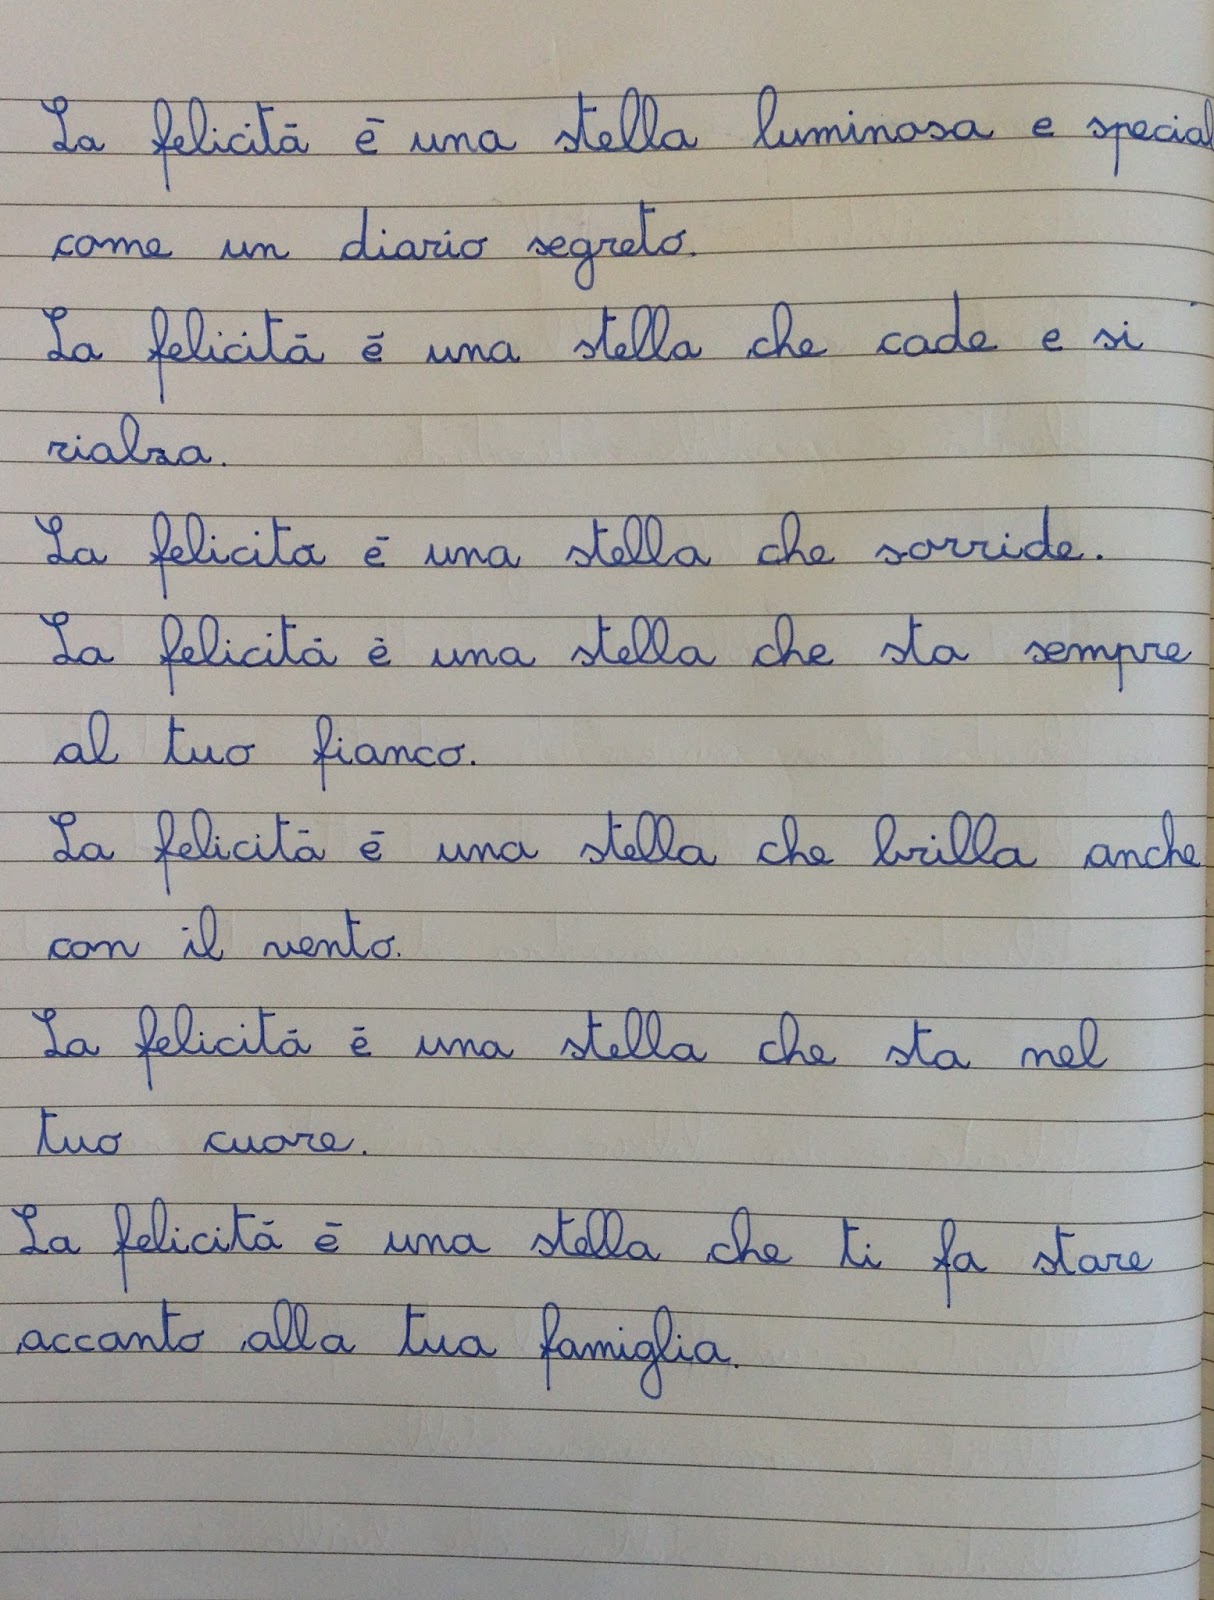 La felicità è una stella luminosa e special
come un diario segreto.
La felicità è una stella che cade e si
rialza.
La felicità è una stella che sorride.
La felicità è una stella che sta sempre
al tuo fianco.
La felicità è una stella che brilla anche
con il vento.
La felicità è una stella che sta nel
tuo cuore.
La felicità è una stella che ti fa stare
accanto alla tua famiglia.